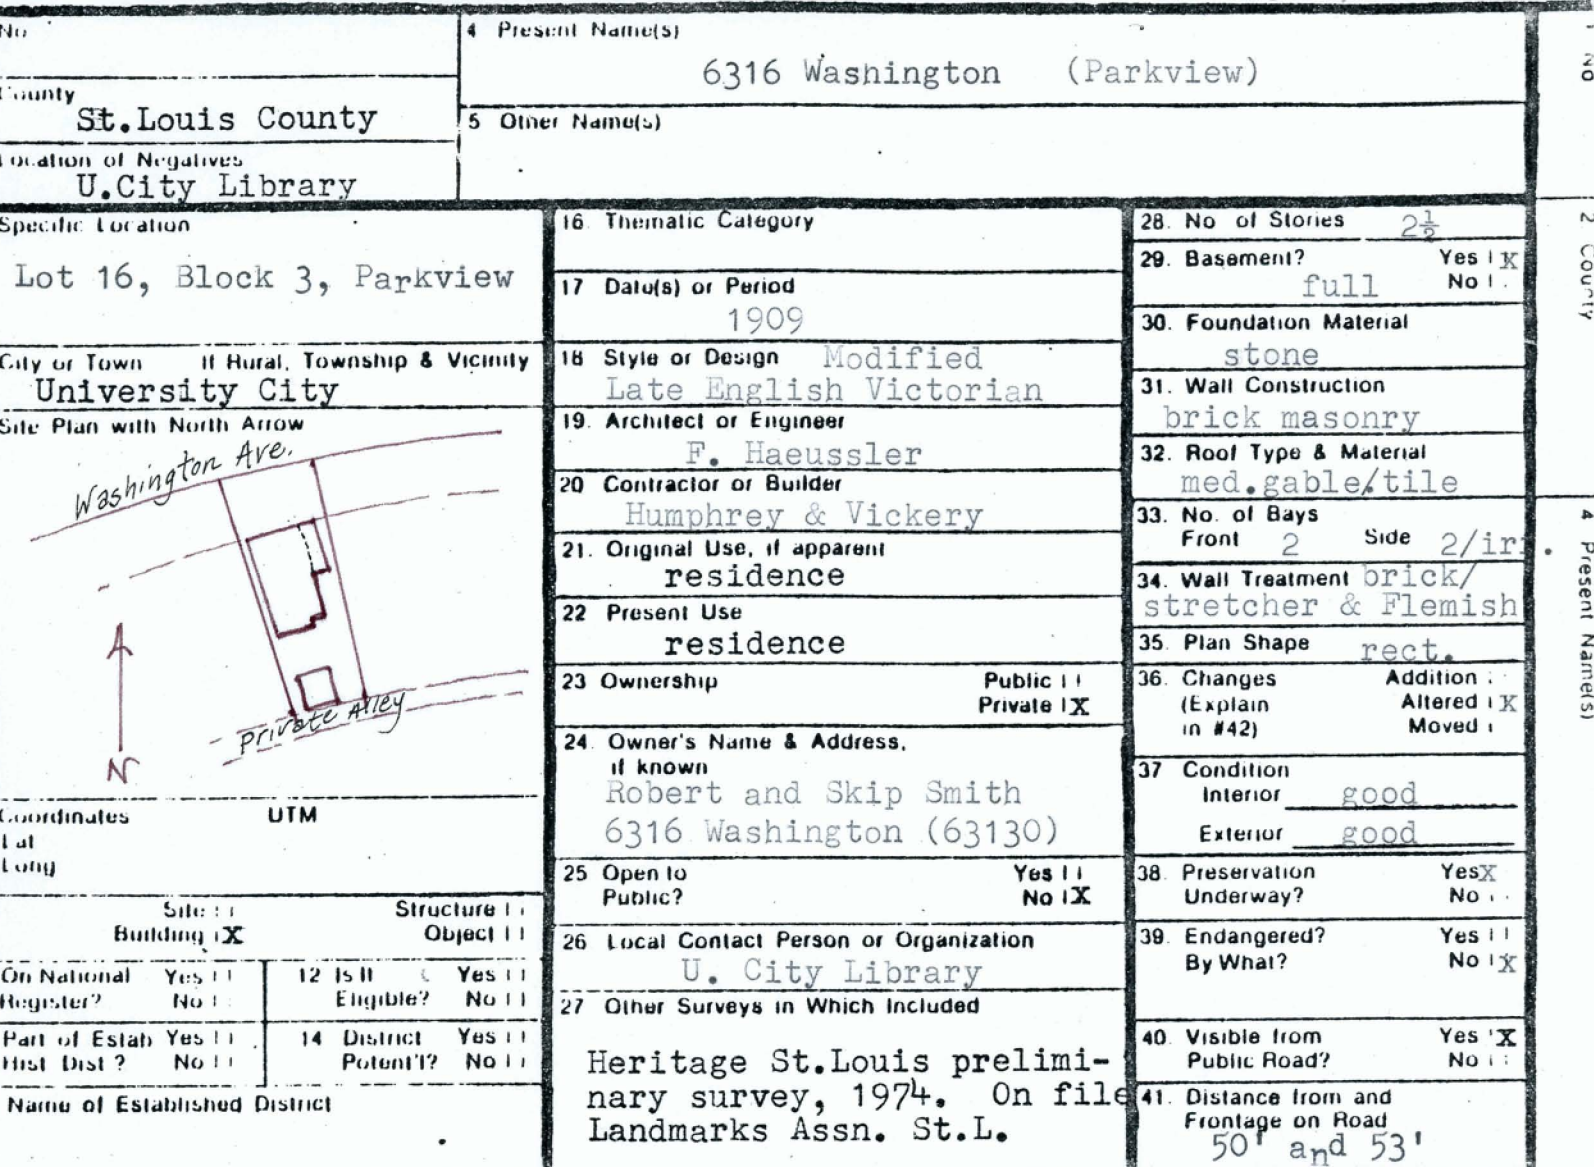 No
4 Present Name(s)
6316 Washington (Parkview)
County
St.Louis County
5 Other Name(s)
Location of Negatives
U.City Library
Specific Location
Lot 16, Block 3, Parkview
City or Town If Rural, Township & Vicinity
University City
Site Plan with North Arrow
Washington Ave.
Private Alley
N
Coordinates UTM
Lat
Long
Site
Structure
Building X
Object
On National Register? Yes No
12 Is It Eligible? Yes No
Part of Estab Hist Dist? Yes No
14 District Potent'l? Yes No
Name of Established District
16. Thematic Category
17 Date(s) or Period
1909
18 Style or Design Modified
Late English Victorian
19. Architect or Engineer
F. Haeussler
20 Contractor or Builder
Humphrey & Vickery
21. Original Use, if apparent
residence
22 Present Use
residence
23 Ownership Public
Private X
24. Owner's Name & Address,
if known
Robert and Skip Smith
6316 Washington (63130)
25 Open to Yes
Public? No X
26 Local Contact Person or Organization
U. City Library
27 Other Surveys in Which Included
Heritage St.Louis prelimi-
nary survey, 1974. On file
Landmarks Assn. St.L.
28. No of Stories 2½
29. Basement? Yes X
full No
30. Foundation Material
stone
31. Wall Construction
brick masonry
32. Roof Type & Material
med.gable/tile
33. No. of Bays
Front 2 Side 2/irr.
34. Wall Treatment brick/
stretcher & Flemish
35. Plan Shape rect.
36. Changes Addition
(Explain Altered X
in #42) Moved
37 Condition
Interior good
Exterior good
38. Preservation Yes X
Underway? No
39. Endangered? Yes
By What? No X
40. Visible from Yes X
Public Road? No
41. Distance from and
Frontage on Road
50' and 53'
2 County
4 Present Name(s)